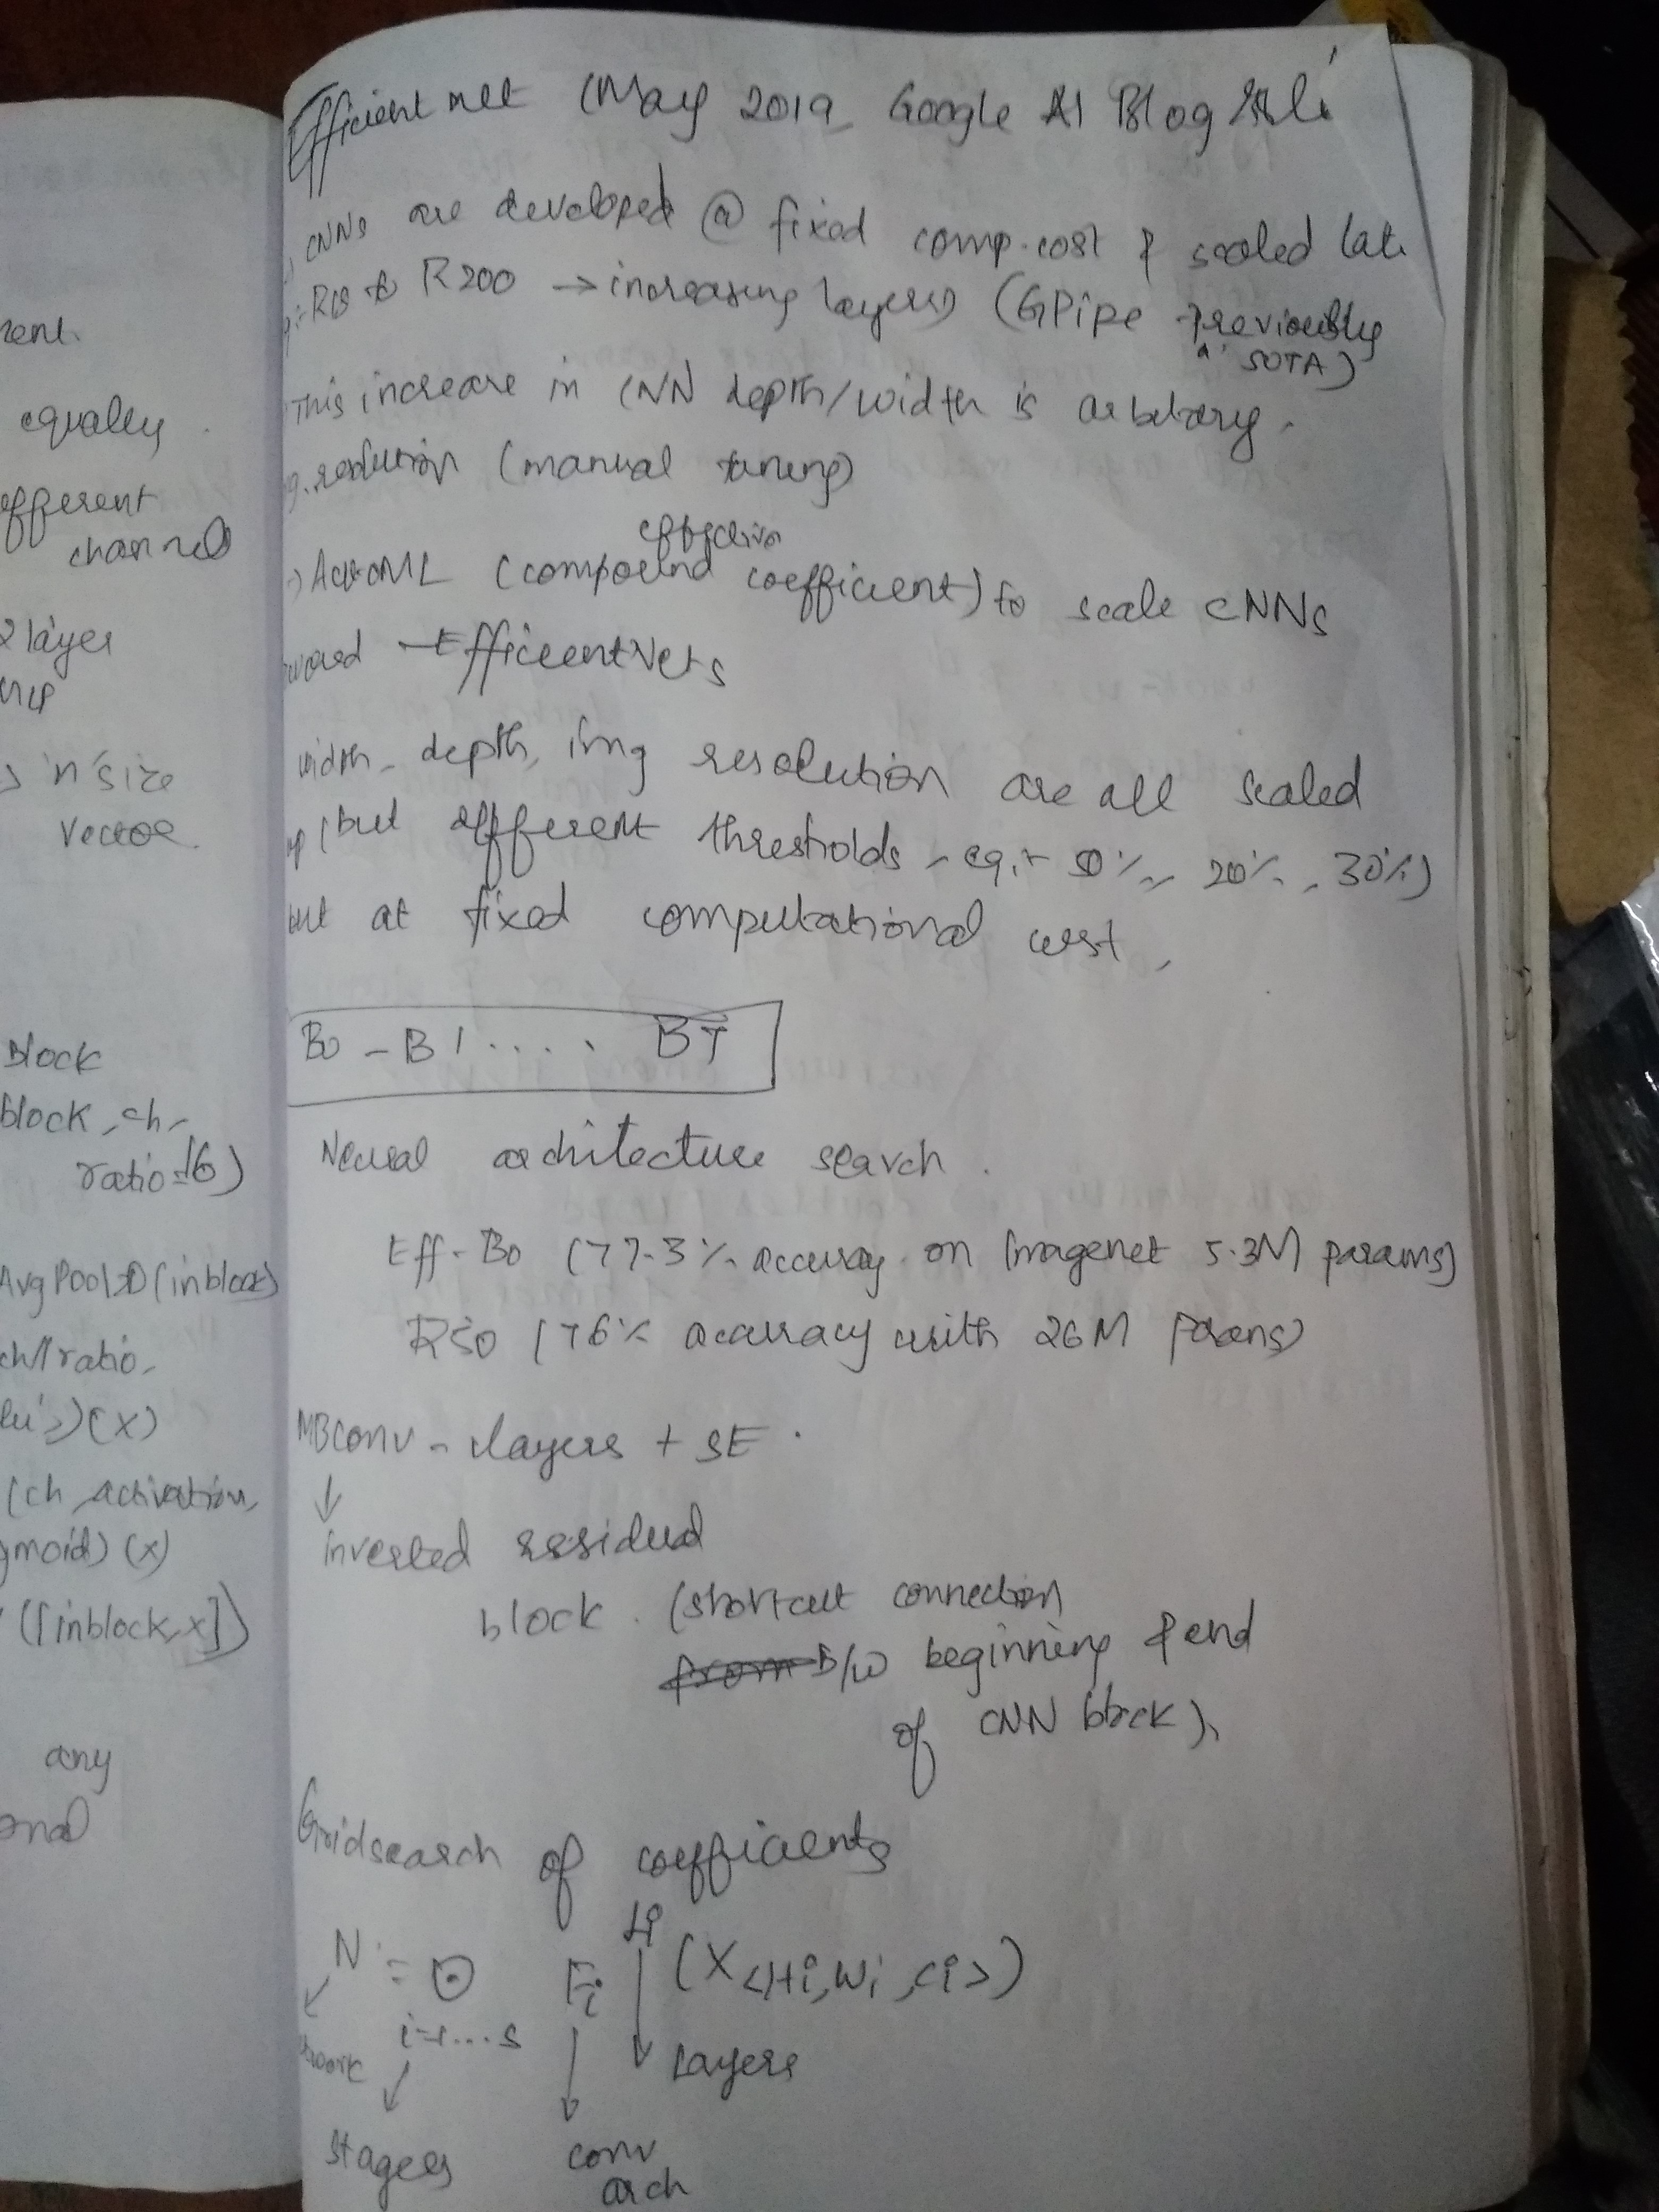 rent.
equally
different
channels
2 layer
MLP
'n' size
vector.
Block
block, ch,
ratio=16)
AvgPool2D(inblock)
ch//ratio,
lu')(x)
(ch, activation,
gmoid)(x)
([inblock, x])
any
onal
Efficient net (May 2019 Google AI Blog
CNNs are developed @ fixed comp. cost & scaled late
R18 to R200 → increasing layers) (GPipe previously
a SOTA)
This increase in CNN depth/width is arbitrary.
resolution (manual tuning)
effective
AutoML (compound coefficient) to scale CNNs
EfficientNets
width, depth, img resolution are all scaled
up (but different thresholds, eg:- 20%, 30%)
but at fixed computational cost,
B0 - B1 .... B7
Neural architecture search.
Eff-B0 (77.3% accuracy on Imagenet 5.3M params)
R50 (76% accuracy with 26M params)
MBConv - layers + SE.
↓
inverted residual
block. (shortcut connection
from B/w beginning & end
of CNN block),
Gridsearch of coefficients
N = ⊙ Fi Li (X<Hi, Wi, Ci>)
i=1...s
Layers
stages conv
arch